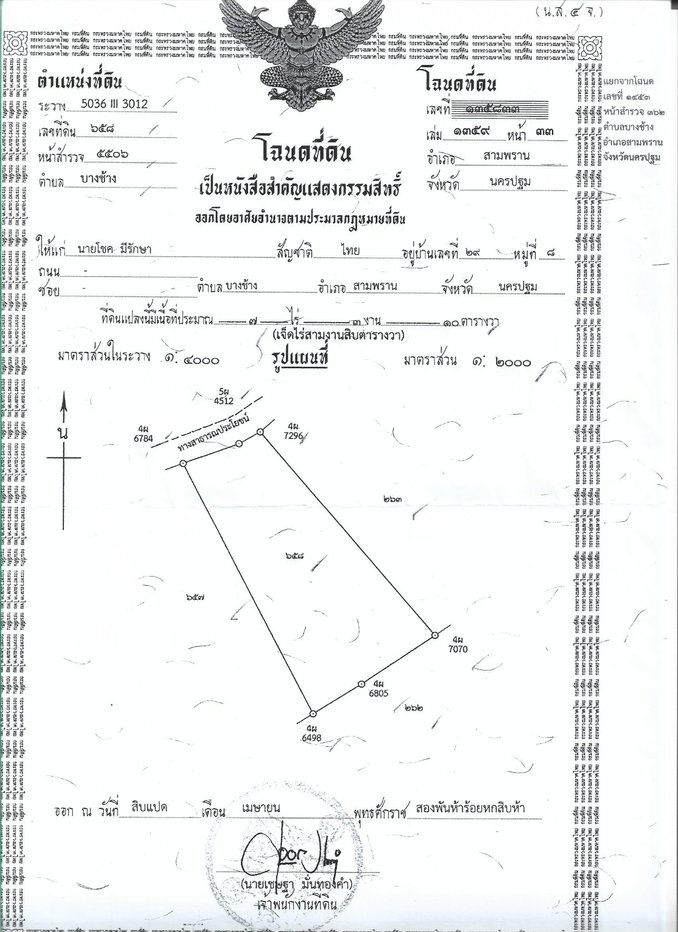 (น.ส.๔ จ.)
ตำแหน่งที่ดิน
ระวาง 5036 III 3012
เลขที่ดิน ๖๕๘
หน้าสำรวจ ๕๕๐๖
ตำบล บางช้าง
โฉนดที่ดิน
เลขที่ ๑๓๕๘๓๓
เล่ม ๑๓๕๙ หน้า ๓๓
อำเภอ สามพราน
จังหวัด นครปฐม
แยกจากโฉนด
เลขที่ ๑๔๕๓
หน้าสำรวจ ๓๖๒
ตำบลบางช้าง
อำเภอสามพราน
จังหวัดนครปฐม
โฉนดที่ดิน
เป็นหนังสือสำคัญแสดงกรรมสิทธิ์
ออกโดยอาศัยอำนาจตามประมวลกฎหมายที่ดิน
ให้แก่ นายโชค มีรักษา สัญชาติ ไทย อยู่บ้านเลขที่ ๒๙ หมู่ที่ ๘
ถนน -
ซอย - ตำบล บางช้าง อำเภอ สามพราน จังหวัด นครปฐม
ที่ดินแปลงนี้มีเนื้อที่ประมาณ ๗ ไร่ ๓ งาน ๑๐ ตารางวา
(เจ็ดไร่สามงานสิบตารางวา)
มาตราส่วนในระวาง ๑: ๔๐๐๐ รูปแผนที่ มาตราส่วน ๑: ๒๐๐๐
น
5ผ
4512
ทางสาธารณประโยชน์
4ผ
6784
4ผ
7296
๒๖๓
๖๕๘
๖๕๗
4ผ
7070
4ผ
6805
๒๖๒
4ผ
6498
ออก ณ วันที่ สิบแปด เดือน เมษายน พุทธศักราช สองพันห้าร้อยหกสิบห้า
(นายเชษฐา มั่นทองคำ)
เจ้าพนักงานที่ดิน